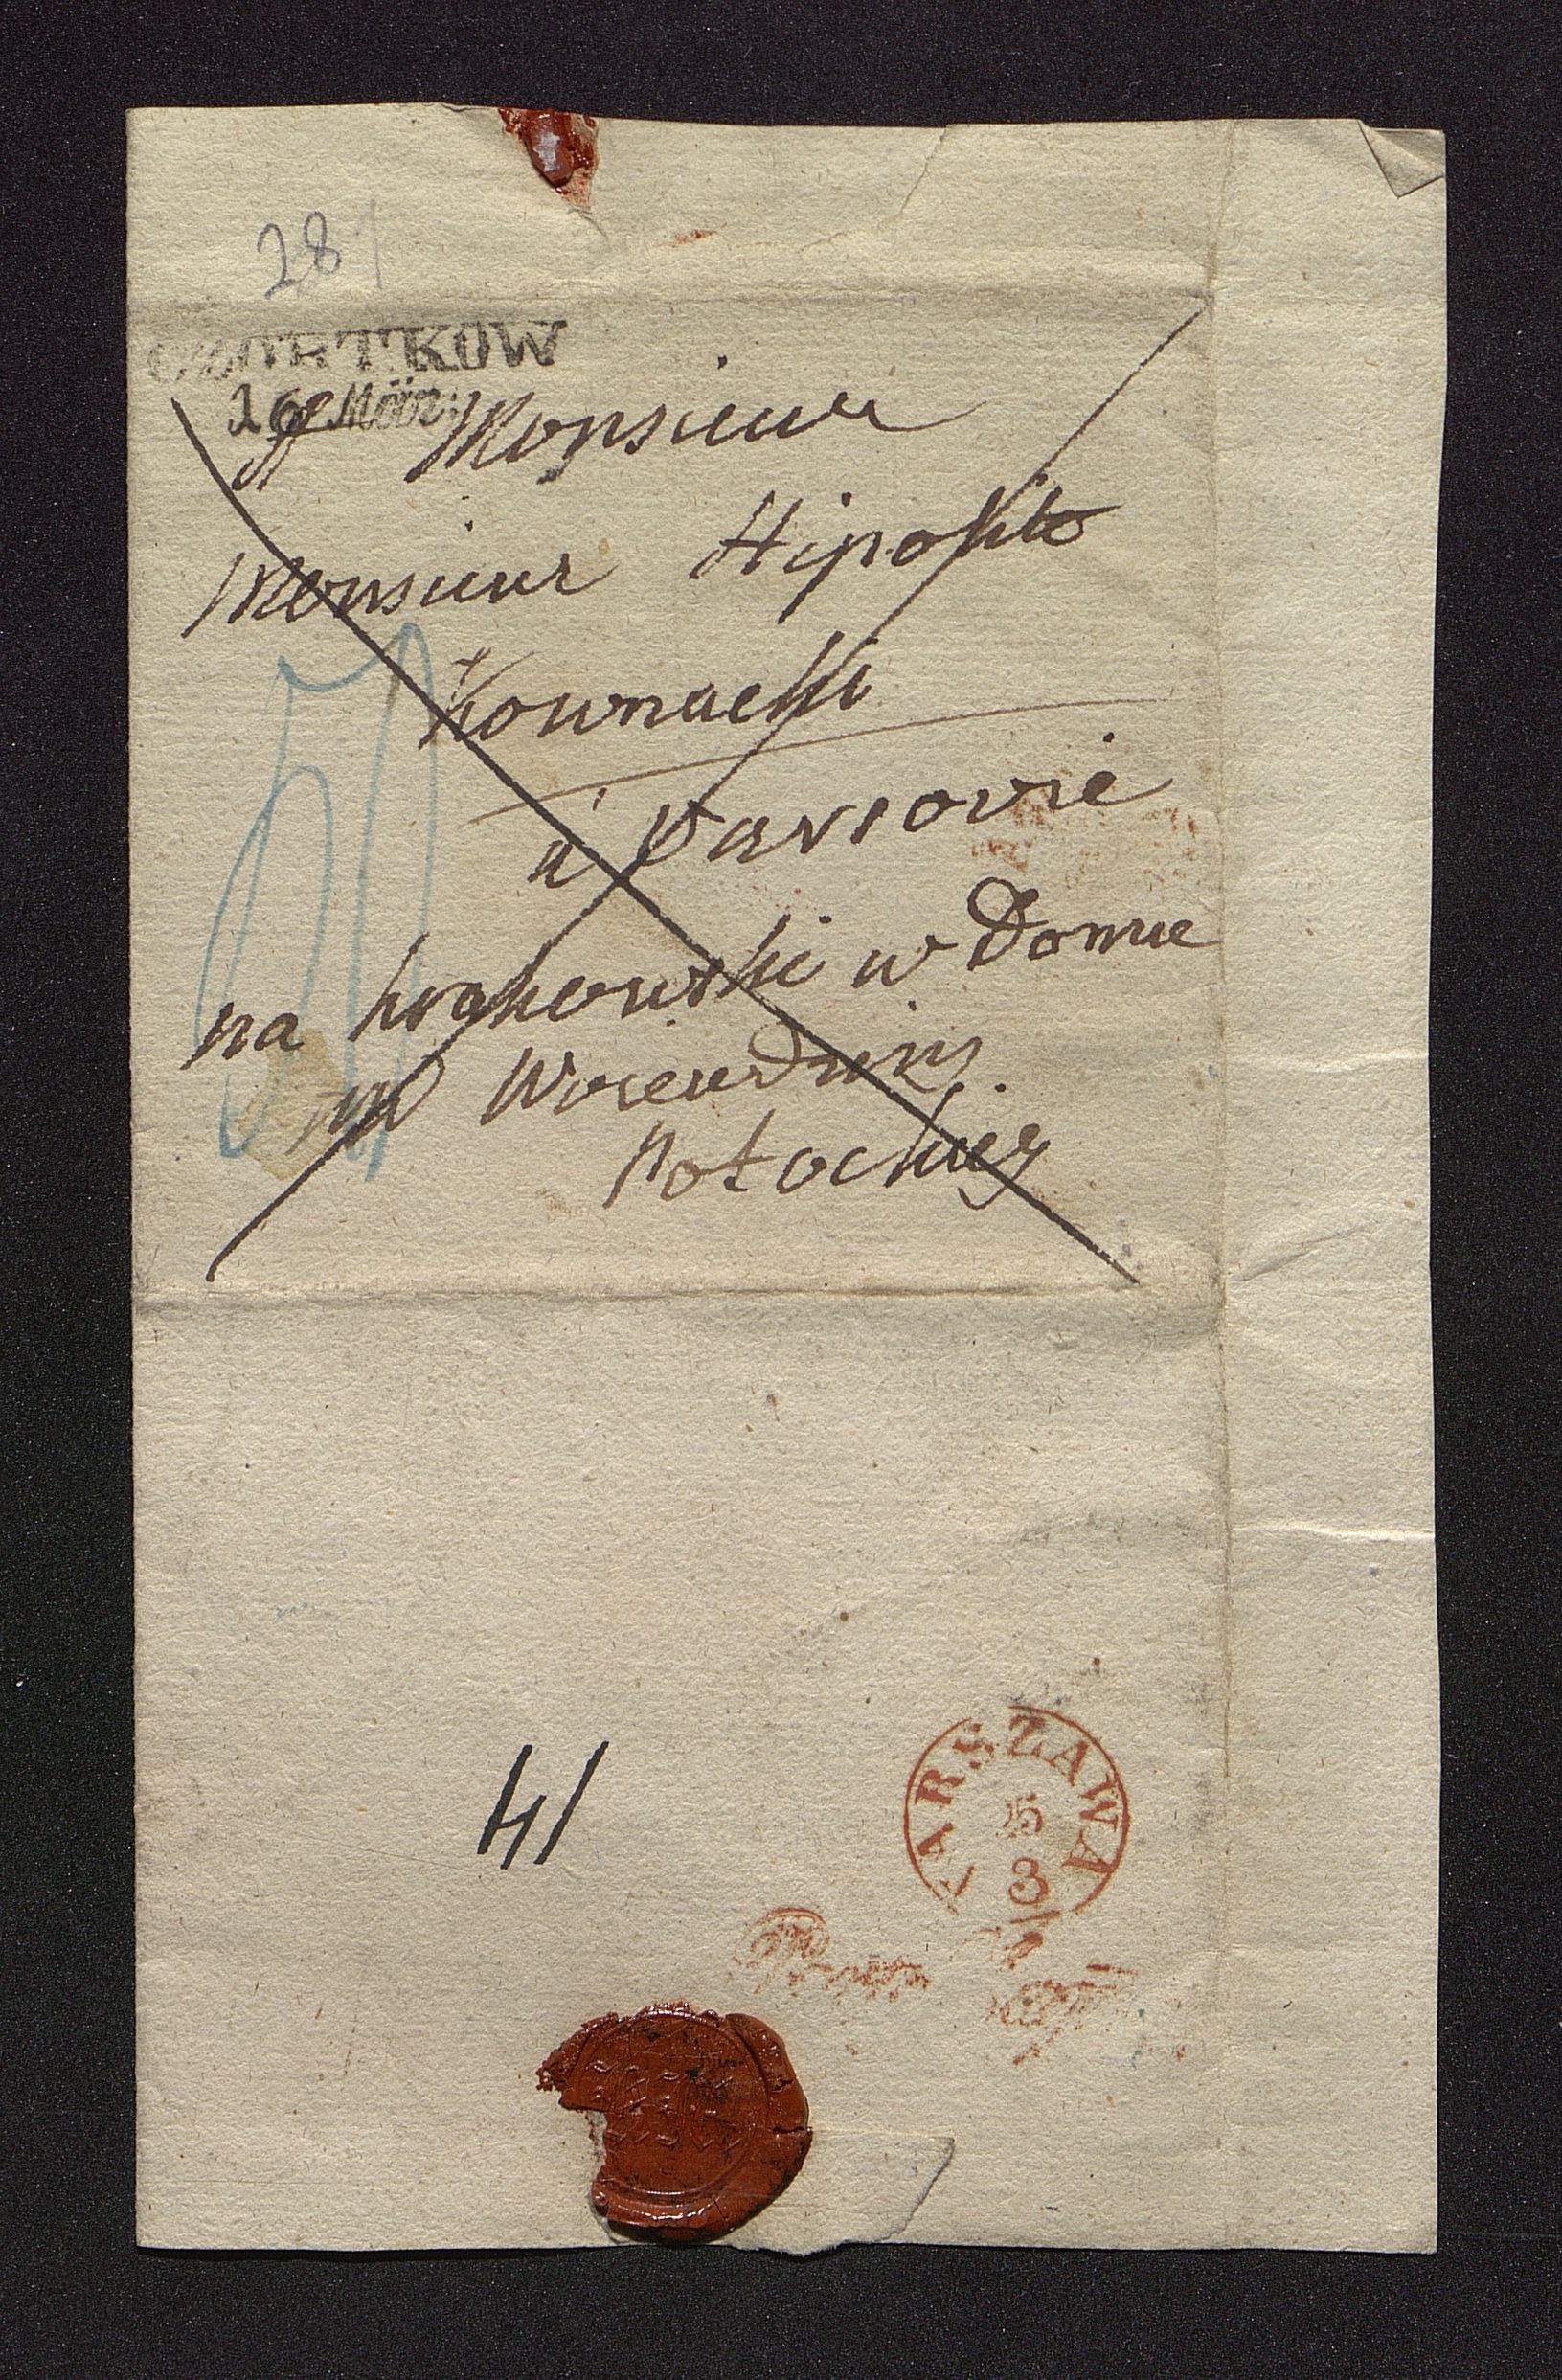 28
CZORTKOW
16 März
A Monsieur
Monsieur Hipolite
Kownacki
à Varsovie
na krakowski w Domie
JW Woiewdziny
Potockiey
41
WARSZAWA
3